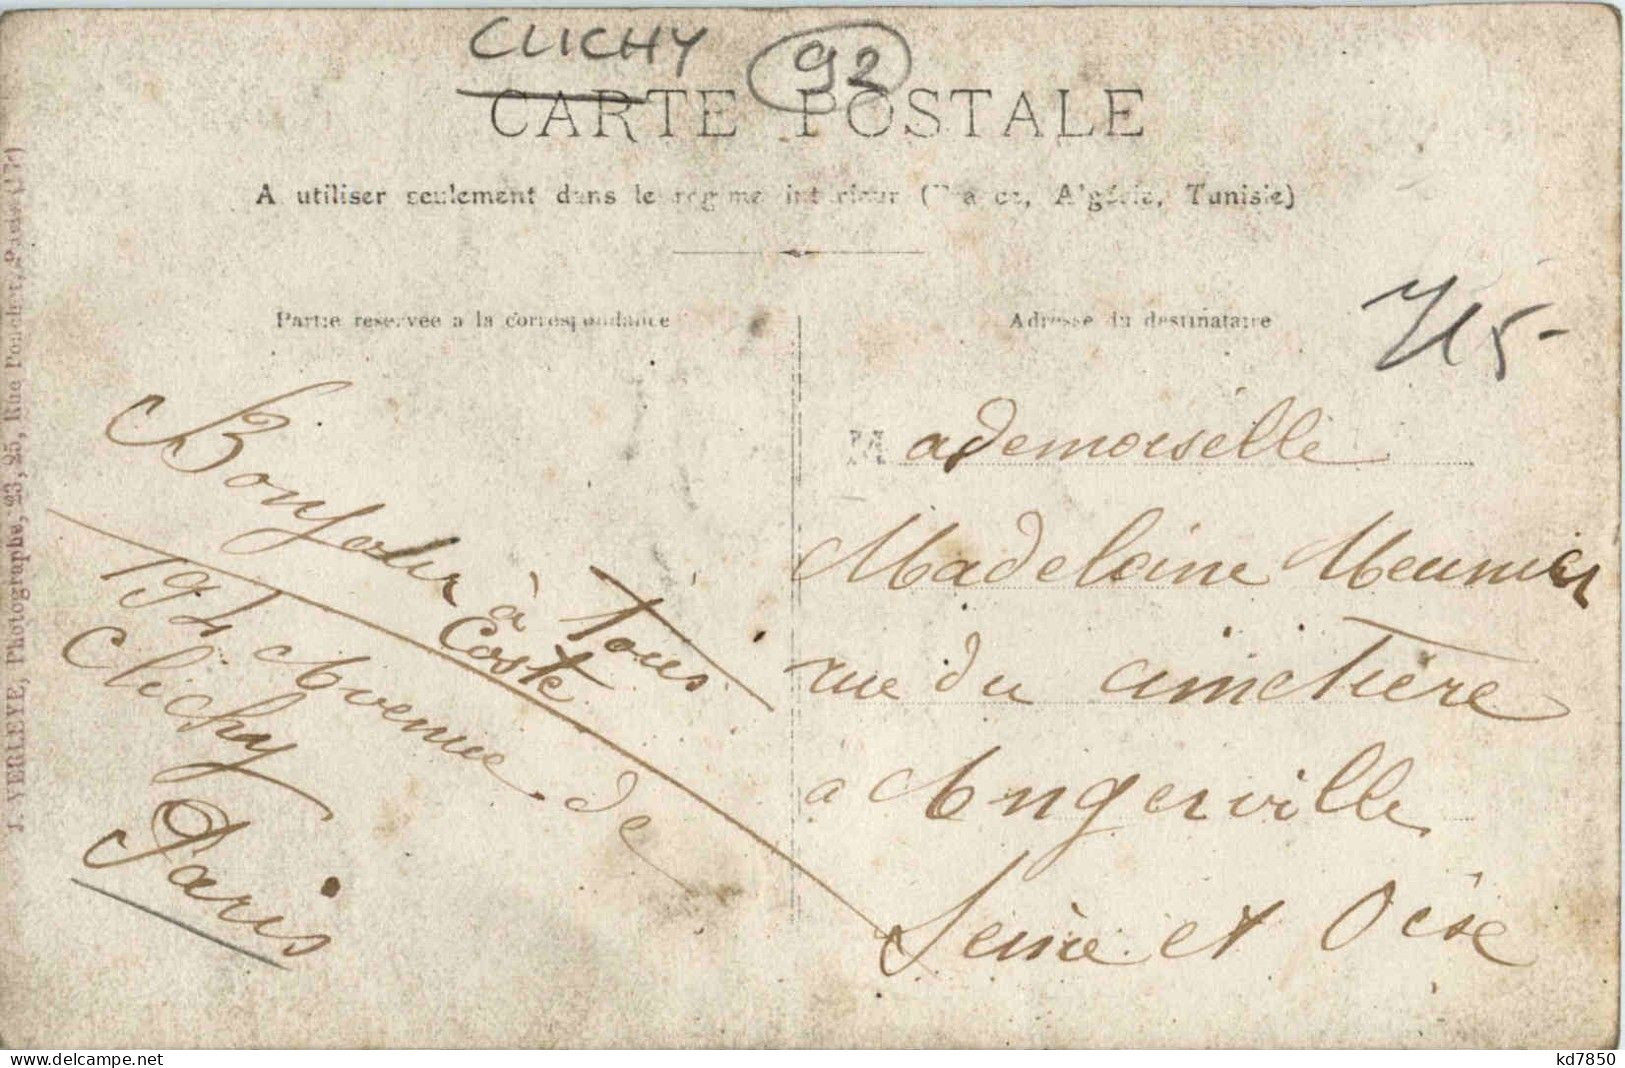 CLICHY 92
CARTE POSTALE
A utiliser seulement dans le régime intérieur (France, Algérie, Tunisie)
Partie réservée a la correspondance
Adresse du destinataire
Bonjour à tous
Coste
194 Avenue de
Clichy
Paris
Mademoiselle
Madeleine Meunier
rue du cimetière
a Angerville
Seine et Oise
J. VERLEYE, Photographe, 23, 25, Rue Pouchet, Paris (17e)
www.delcampe.net
kd7850